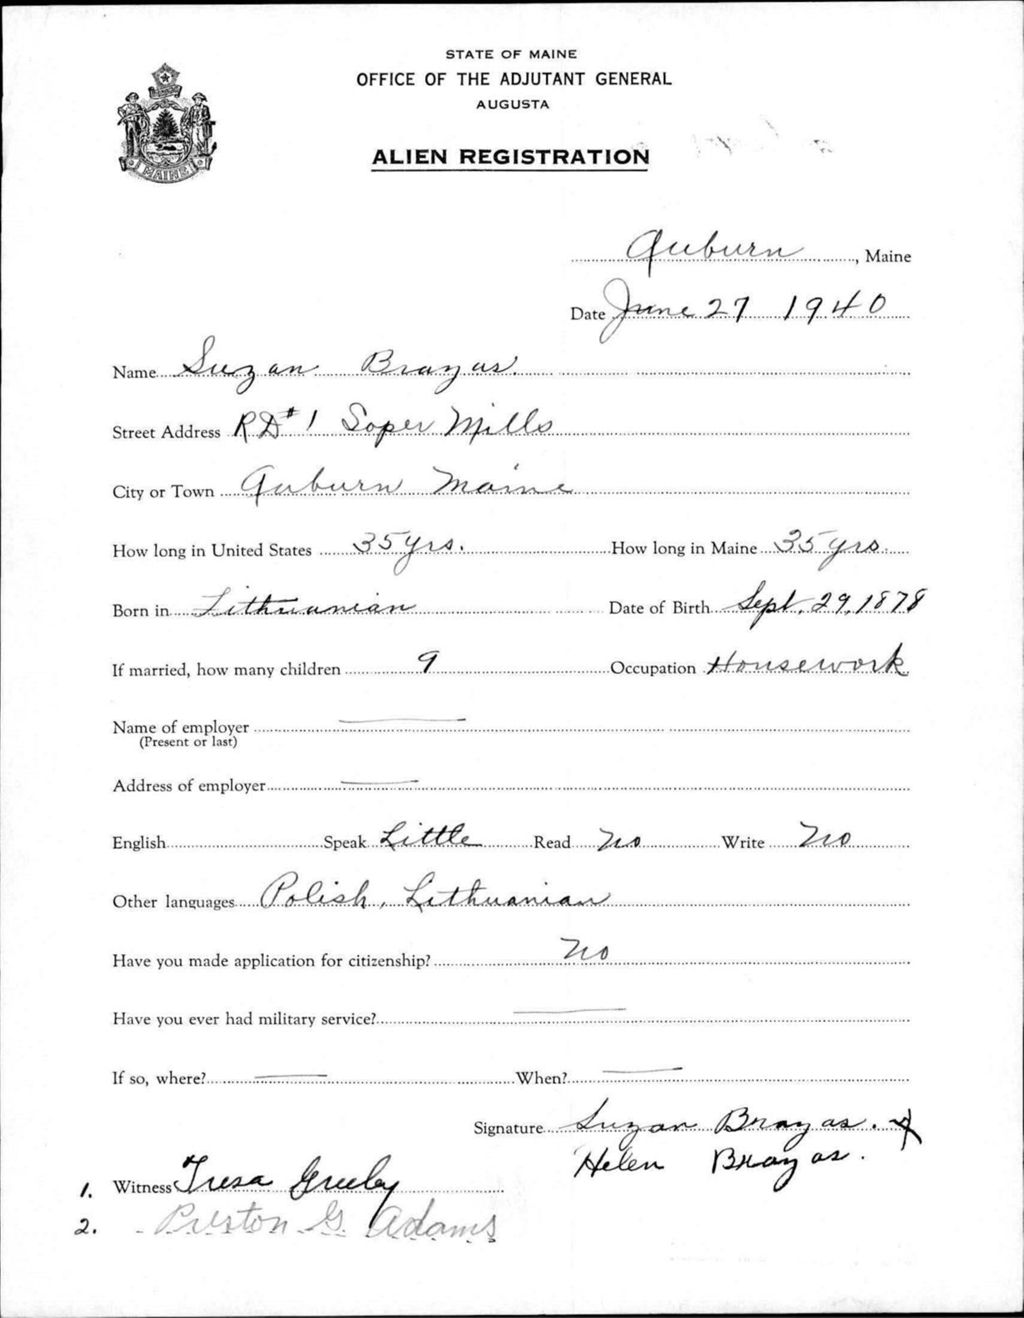 STATE OF MAINE
OFFICE OF THE ADJUTANT GENERAL
AUGUSTA
ALIEN REGISTRATION
MAINE
Auburn, Maine
Date June 27 1940
Name Suzan Brazas.
Street Address RD#1 Soper Mills
City or Town Auburn Maine
How long in United States 35 yrs. How long in Maine 35 yrs.
Born in Lithuanian Date of Birth Sept. 29, 1878
If married, how many children 9 Occupation Housework
Name of employer
(Present or last)
Address of employer
English Speak Little Read No Write No
Other languages Polish, Lithuanian
Have you made application for citizenship? No
Have you ever had military service?
If so, where? When?
Signature Suzan Brazas. X
Helen Brazas.
1. Witness Tresa Greeley
2. Preston G. Adams